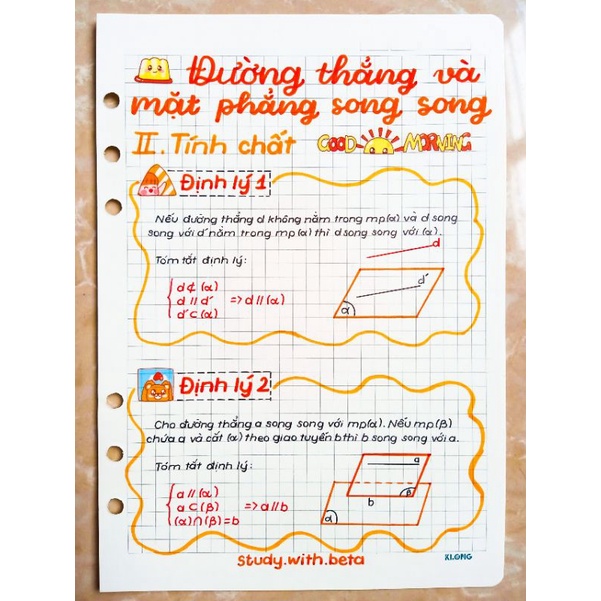 Đường thẳng và
mặt phẳng song song
II. Tính chất
GOOD MORNING
Định lý 1
Nếu đường thẳng d không nằm trong mp(α) và d song
song với d' nằm trong mp(α) thì d song song với (α).
Tóm tắt định lý:
d ⊄ (α)
d // d' => d // (α)
d' ⊂ (α)
d
d'
α
Định lý 2
Cho đường thẳng a song song với mp(α). Nếu mp(β)
chứa a và cắt (α) theo giao tuyến b thì b song song với a.
Tóm tắt định lý:
a // (α)
a ⊂ (β) => a // b
(α) ∩ (β) = b
a
b
β
α
study.with.beta
KLONG